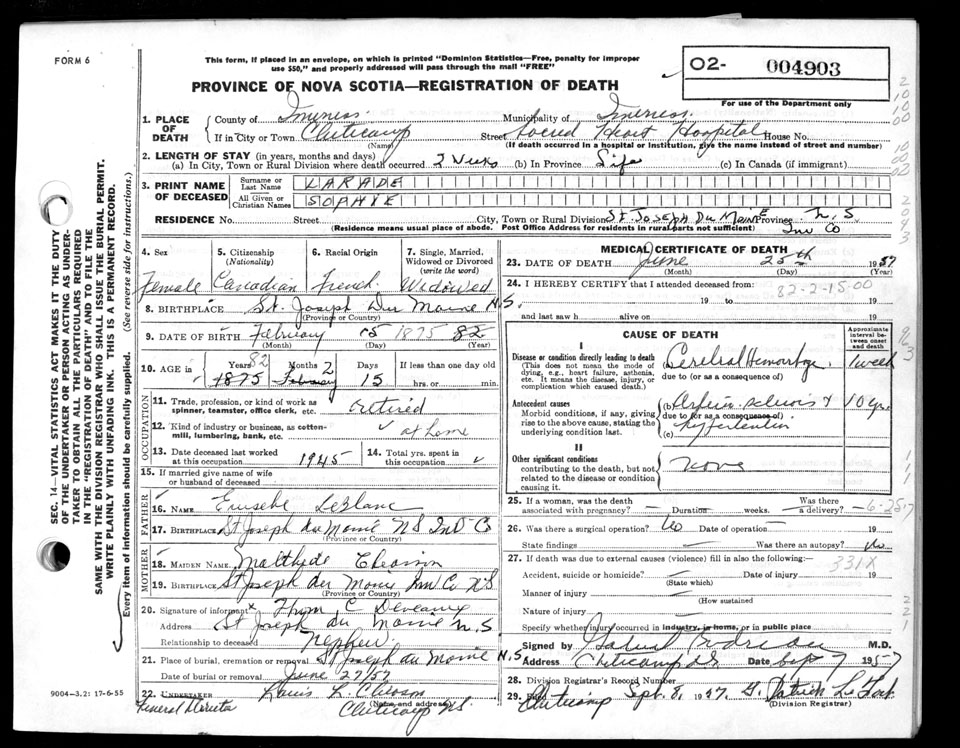 FORM 6
This form, if placed in an envelope, on which is printed "Dominion Statistics—Free, penalty for improper
use $50," and properly addressed will pass through the mail "FREE"
PROVINCE OF NOVA SCOTIA—REGISTRATION OF DEATH
O2- 004903
For use of the Department only
SEC. 14—VITAL STATISTICS ACT MAKES IT THE DUTY
OF THE UNDERTAKER OR PERSON ACTING AS UNDER-
TAKER TO OBTAIN ALL THE PARTICULARS REQUIRED
IN THE "REGISTRATION OF DEATH" AND TO FILE THE
SAME WITH THE DIVISION REGISTRAR WHO SHALL ISSUE THE BURIAL PERMIT.
WRITE PLAINLY WITH UNFADING INK. THIS IS A PERMANENT RECORD.
Every item of information should be carefully supplied. (See reverse side for instructions.)
1. PLACE OF DEATH
County of Inverness. Municipality of Inverness.
If in City or Town Cheticamp Street Sacred Heart Hospital House No.
(Name) (If death occurred in a hospital or institution, give the name instead of street and number)
2. LENGTH OF STAY (in years, months and days)
(a) In City, Town or Rural Division where death occurred 3 Weeks (b) In Province Life (c) In Canada (if immigrant)
3. PRINT NAME OF DECEASED
Surname or Last Name LARADE
All Given or Christian Names SOPHIE
RESIDENCE No. Street City, Town or Rural Division ST. JOSEPH DU MOINE Province N.S.
(Residence means usual place of abode. Post Office Address for residents in rural parts not sufficient) Inv Co
4. Sex 5. Citizenship (Nationality) 6. Racial Origin 7. Single, Married, Widowed or Divorced (write the word)
Female Canadian French Widowed
8. BIRTHPLACE St. Joseph Du Moine N.S.
(Province or Country)
9. DATE OF BIRTH February 15 1875 82
(Month) (Day) (Year)
10. AGE in Years 82 Months 2 Days If less than one day old
1875 February 15 hrs. or min.
OCCUPATION
11. Trade, profession, or kind of work as
spinner, teamster, office clerk, etc. retired
12. Kind of industry or business, as cotton-
mill, lumbering, bank, etc. at home
13. Date deceased last worked at this occupation 1945 14. Total yrs. spent in this occupation
15. If married give name of wife
or husband of deceased
FATHER
16. Name Eusebe LeBlanc
17. Birthplace St Joseph du Moine N S Inv Co
(Province or Country)
MOTHER
18. Maiden Name Chiasson
19. Birthplace St Joseph du Moine Inv Co N.S
(Province or Country)
20. Signature of informant Thom C Deveaux
Address St Joseph du Moine N.S
Relationship to deceased Nephew.
21. Place of burial, cremation or removal St Joseph du Moine N.S
June 27/57
22. UNDERTAKER Louis L. Chiasson
(Name and address)
Funeral Director Cheticamp N.S.
9004—3.2: 17-6-55
MEDICAL CERTIFICATE OF DEATH
23. DATE OF DEATH June 25th 1957
(Month) (Day) (Year)
24. I HEREBY CERTIFY that I attended deceased from:
82-2-15-00
19 to 19
and last saw h alive on 19
CAUSE OF DEATH
Approximate interval between onset and death
I
Disease or condition directly leading to death
(This does not mean the mode of dying, e.g., heart failure, asthenia, etc. It means the disease, injury, or complication which caused death.)
(a) Cerebral Hemorrhage 1 week
due to (or as a consequence of)
Antecedent causes
Morbid conditions, if any, giving rise to the above cause, stating the underlying condition last.
(b) 10 yrs.
due to (or as a consequence of)
(c) hypertention
II
Other significant conditions
contributing to the death, but not related to the disease or condition causing it.
none
25. If a woman, was the death associated with pregnancy? — Duration weeks. Was there a delivery? —
6-25-57
26. Was there a surgical operation? No Date of operation — 19
State findings — Was there an autopsy? No
27. If death was due to external causes (violence) fill in also the following:—
331X
Accident, suicide or homicide? — Date of injury 19
(State which)
Manner of injury
(How sustained
Nature of injury
Specify whether injury occurred in industry, in home, or in public place
Signed by M.D.
Address Cheticamp N.S. Date Sept 7 1957
28. Division Registrar's Record Number
29. Filed Cheticamp Sept. 8, 1957 Patrick
(Division Registrar)